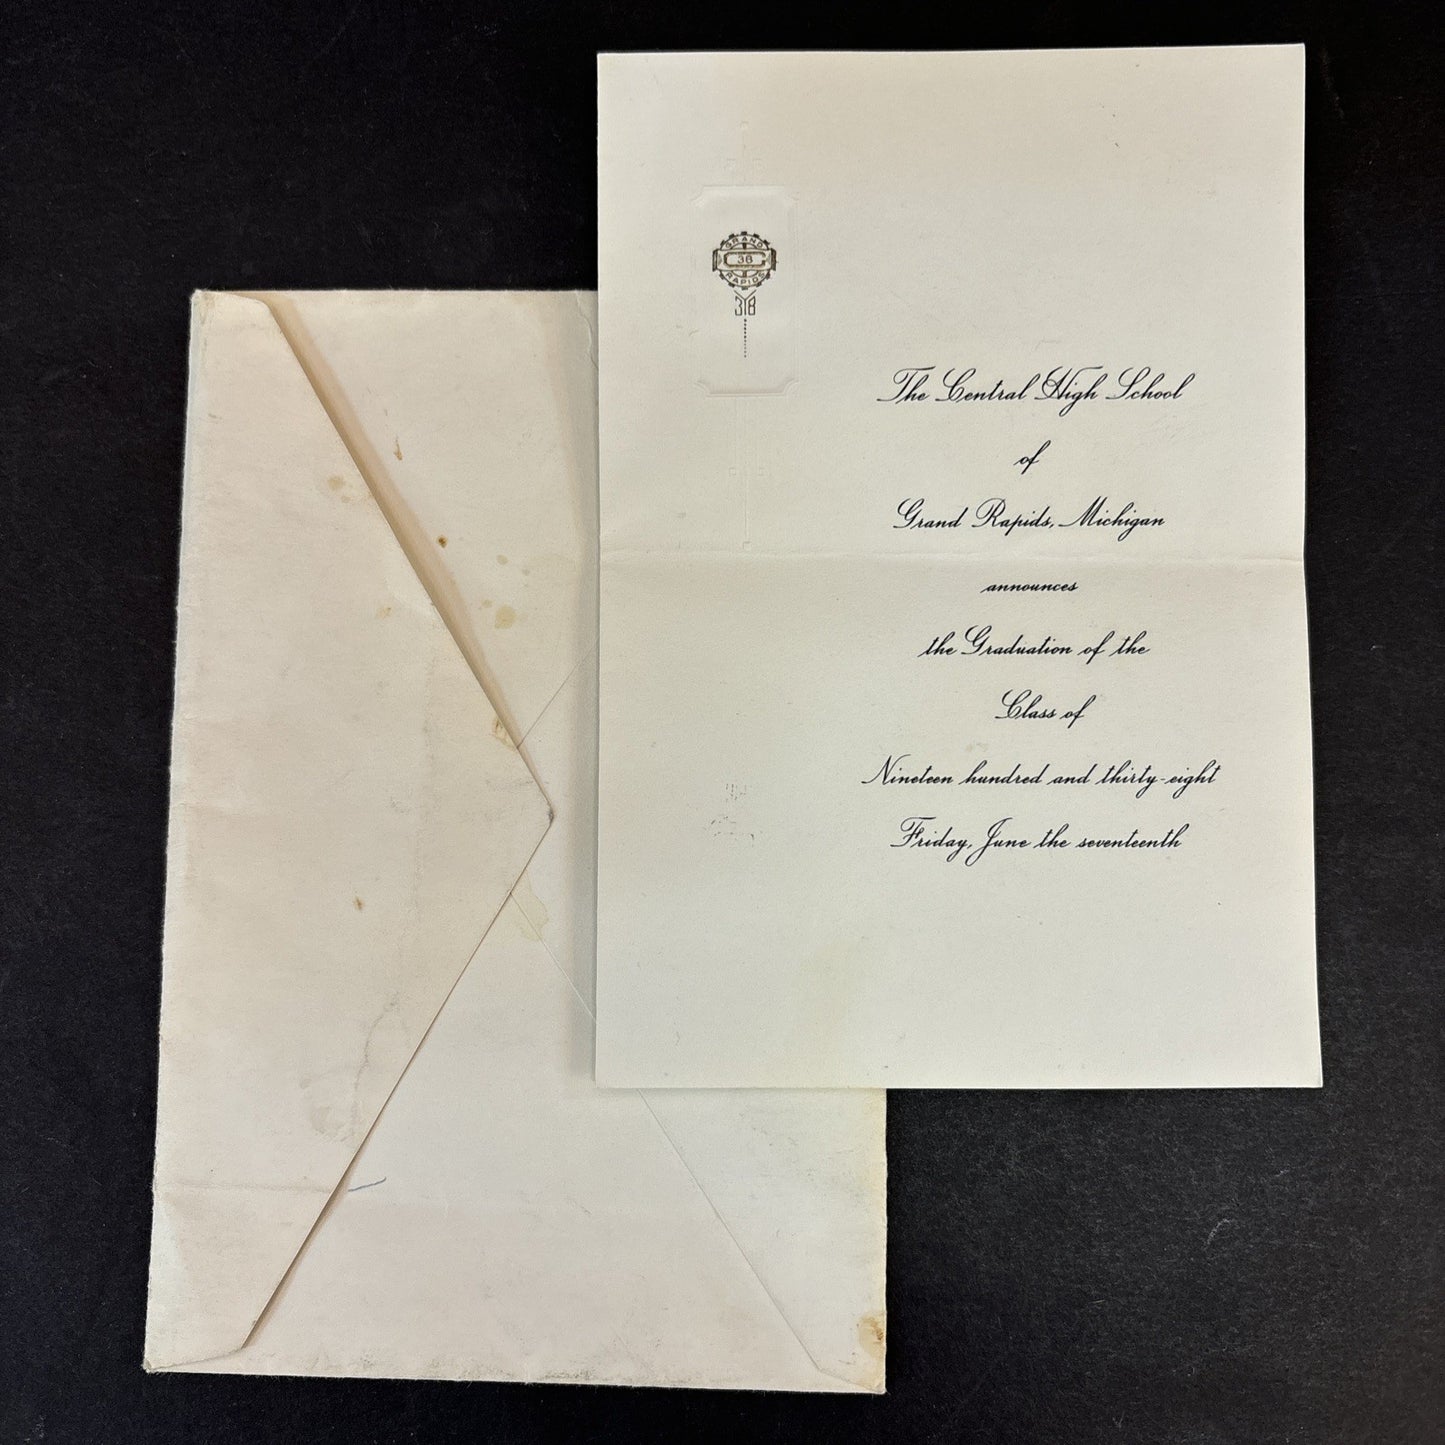 GRAND
38
RAPIDS
38
The Central High School
of
Grand Rapids, Michigan
announces
the Graduation of the
Class of
Nineteen hundred and thirty-eight
Friday, June the seventeenth